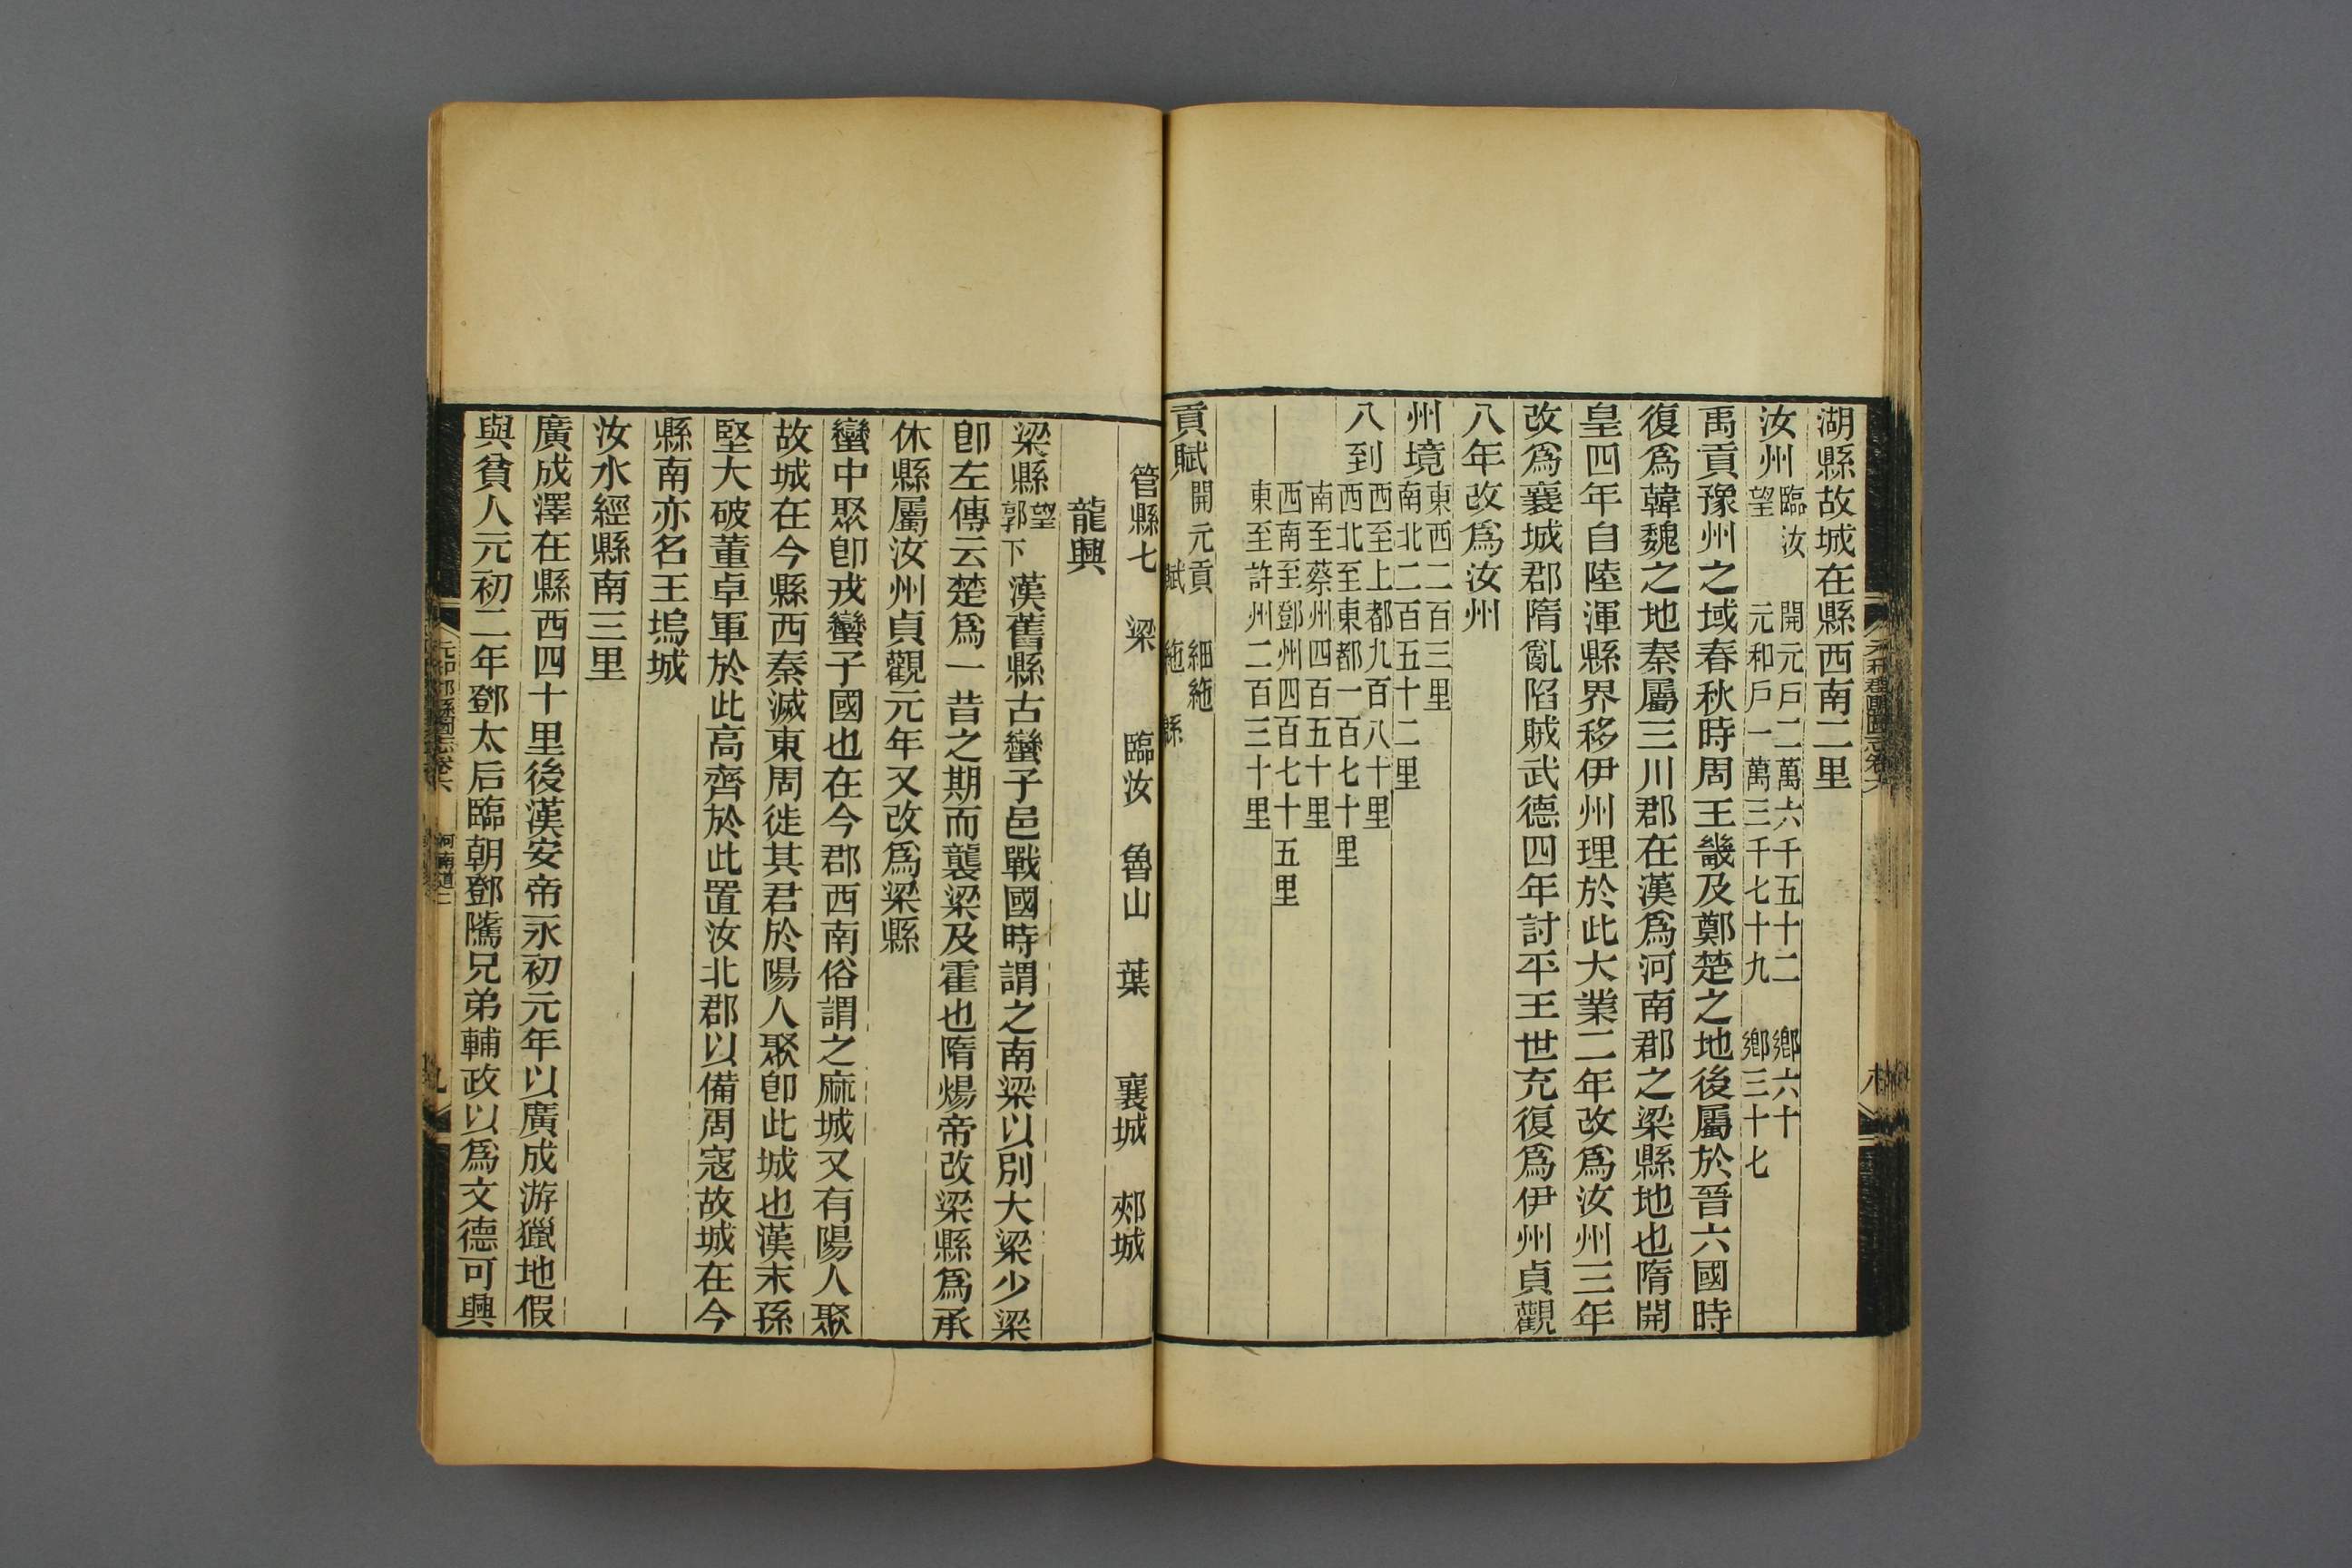 湖縣故城在縣西南二里
汝州
臨汝 開元戶二萬六千五十二 鄉六十
望 元和戶一萬三千七十九 鄉三十七
禹貢豫州之域春秋時周王畿及鄭楚之地後屬於晉六國時
復爲韓魏之地秦屬三川郡在漢爲河南郡之梁縣地也隋開
皇四年自陸渾縣界移伊州理於此大業二年改爲汝州三年
改爲襄城郡隋亂陷賊武德四年討平王世充復爲伊州貞觀
八年改爲汝州
州境
東西二百三里
南北二百五十二里
八到
西至上都九百八十里
西北至東都一百七十里
南至蔡州四百五十里
西南至鄧州四百七十五里
東至許州二百三十里
貢賦
開元貢 細絁
賦 絁 緜
管縣七 梁 臨汝 魯山 葉 襄城 郟城
龍興
梁縣
望
郭下
漢舊縣古蠻子邑戰國時謂之南梁以別大梁少梁
卽左傳云楚爲一昔之期而襲梁及霍也隋煬帝改梁縣爲承
休縣屬汝州貞觀元年又改爲梁縣
蠻中聚卽戎蠻子國也在今郡西南俗謂之麻城又有陽人聚
故城在今縣西秦滅東周徙其君於陽人聚卽此城也漢末孫
堅大破董卓軍於此高齊於此置汝北郡以備周寇故城在今
縣南亦名王塢城
汝水經縣南三里
廣成澤在縣西四十里後漢安帝永初元年以廣成游獵地假
與貧人元初二年鄧太后臨朝鄧騭兄弟輔政以爲文德可興
元和郡縣圖志卷六 河南道二 九